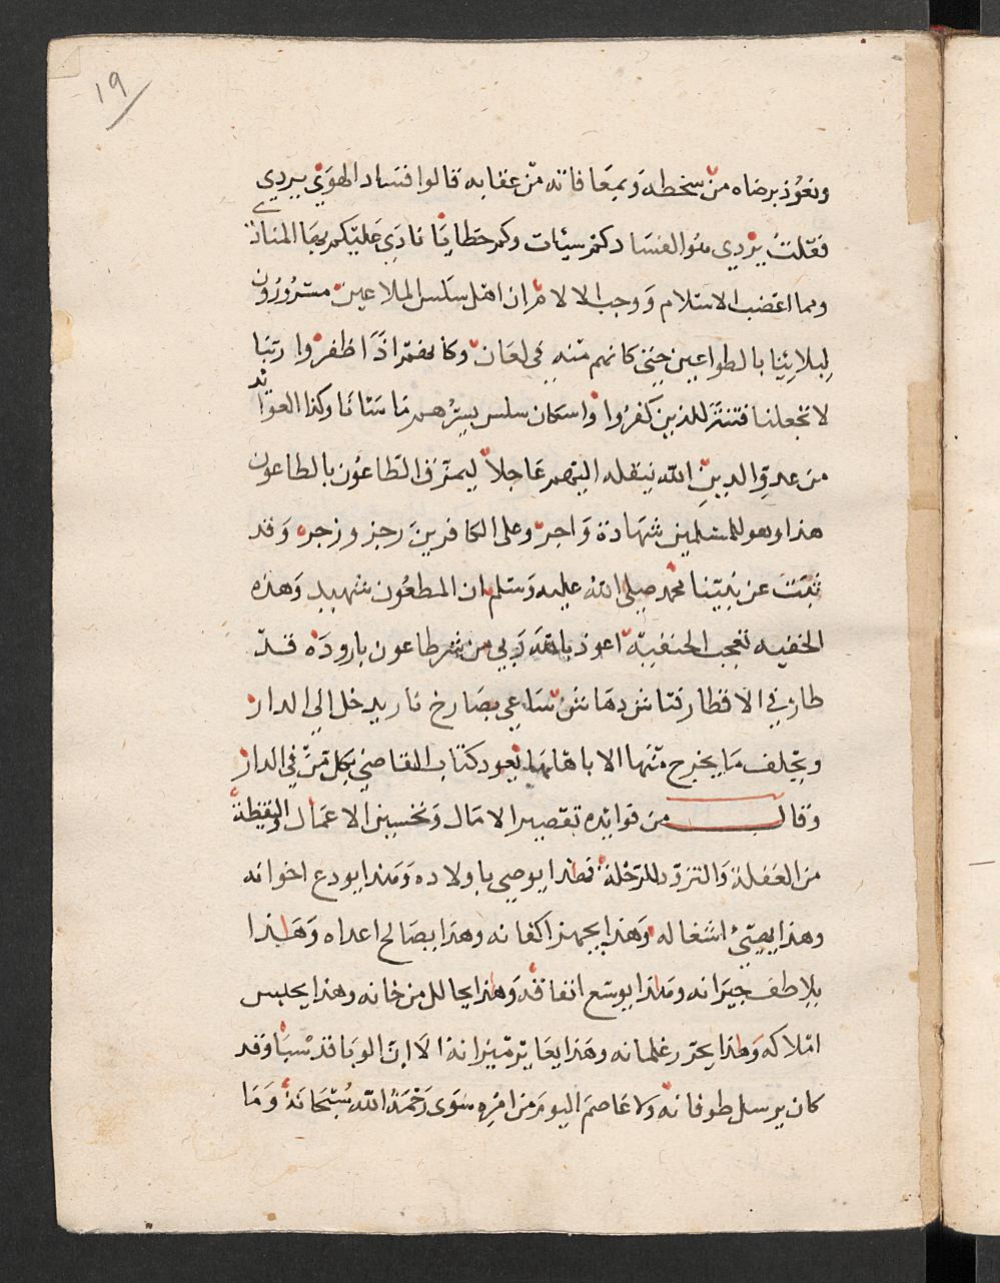 ١٩
ونعوذ برضاه من سخطه وبمعافاته من عقابه قالوا فساد الهوى يردي
فقلت يردي هوا الفساد كم سيئات وكم خطايا نادى عليكم بها المناد
ومما اغضب الاسلام ووجب الالام ان اهل سلس الملاعين مسرورون
لبلائنا بالطواعين حتى كانهم منه في امان وكانهم اذا ظفروا ربنا
لا تجعلنا فتنة للذين كفروا واسكان سلس يسرهم ما ساءنا وكذا العوائد
من عدو الدين الله ينقله اليهم عاجلا ليمزق الطاعون بالطاعون
هذا وهو للمسلمين شهادة واجر وعلى الكافرين رجز وزجر وقد
ثبت عن نبينا محمد صلى الله عليه وسلم ان المطعون شهيد وهذه
الخفيه تعجب الحنفية اعوذ بالله ربي من شر طاعون بارودة قد
طار في الاقطار فتاش دهاش ساعي صارخ نار يدخل الى الدار
ويحلف ما يخرج منها الا باهلها يعود كتاب القاضي بكل من في الدار
وقال من فوائده تقصير الامال وتحسين الاعمال واليقظة
من الغفلة والتزود للرحلة فهذا يوصي باولاده وهذا يودع اخوانه
وهذا يهيئ اشغاله وهذا يجهز اكفانه وهذا يصالح اعداه وهذا
يلاطف جيرانه وهذا يوسع انفاقه وهذا يحالل من خانه وهذا يحبس
املاكه وهذا يحرر غلمانه وهذا يعاير ميزانه الا ان الوبا قد سبا وقد
كان يرسل طوفانه ولا عاصم اليوم من امره سوى رحمة الله سبحانه وما